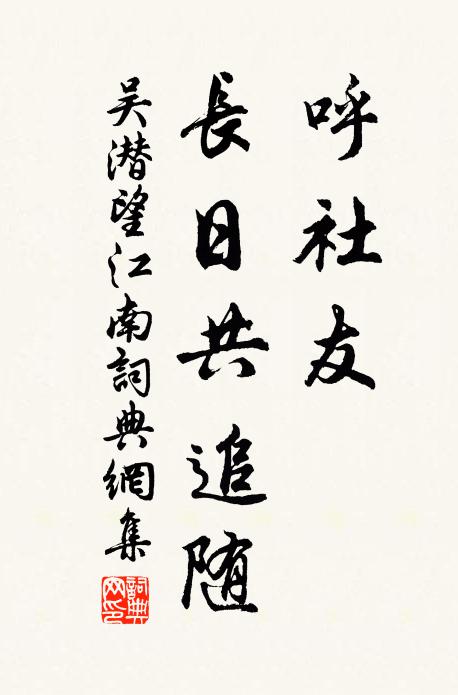 呼社友
長日共追随
吴潜望江南詞典網集
詞典网印